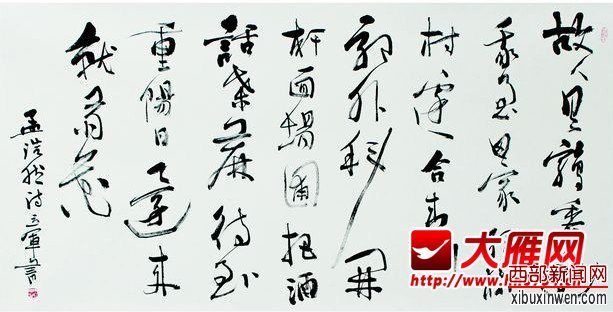 故人具鷄黍
我至田家
村邊合青
郭外斜開
軒面場圃把酒
話桑麻待到
重陽日還來
就菊花
孟浩然诗
大雁网
西部新闻网
xibuxinwen.com